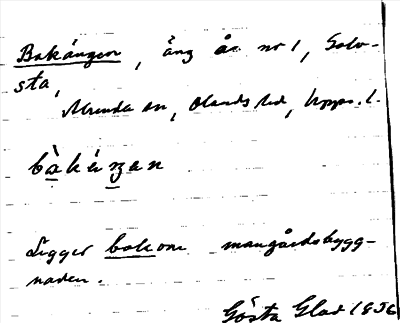 Bakängen, äng å nr 1, Golv-
sta,
Alunda sn, Olands hd, Upps. l.
bàkéŋan
Ligger bakom mangårdsbygg-
naden.
Gösta Glad 1956